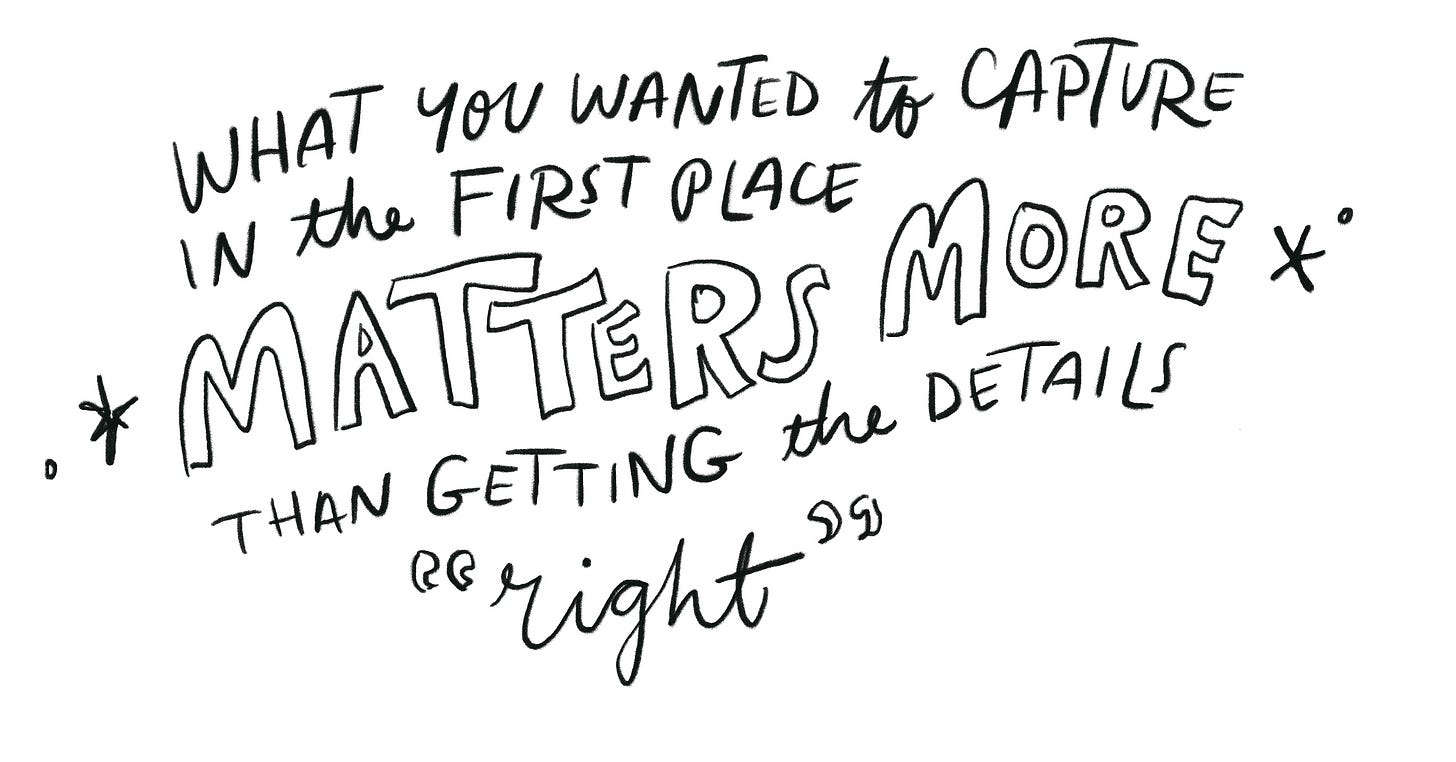 WHAT YOU WANTED to CAPTURE
IN the FIRST PLACE
MATTERS MORE
THAN GETTING the DETAILS
“right”